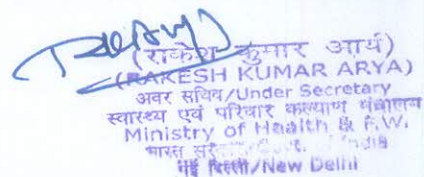 (राकेश कुमार आर्य)
(RAKESH KUMAR ARYA)
अवर सचिव/Under Secretary
स्वास्थ्य एवं परिवार कल्याण मंत्रालय
Ministry of Health & F.W.
भारत सरकार/Govt. of India
नई दिल्ली/New Delhi